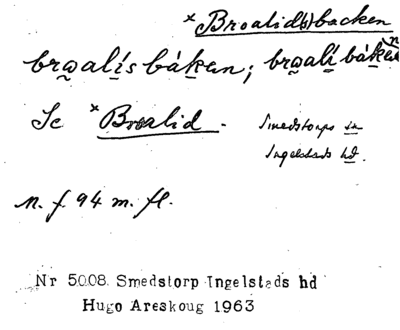 × Broalid(s)backen
brωalís bák̲en; brωalí bák̲en
Se × Broalid.
Smedstorps sn
Ingelstads hd.
n. f. 94 m. fl.
Nr 5008. Smedstorp Ingelstads hd
Hugo Areskoug 1963